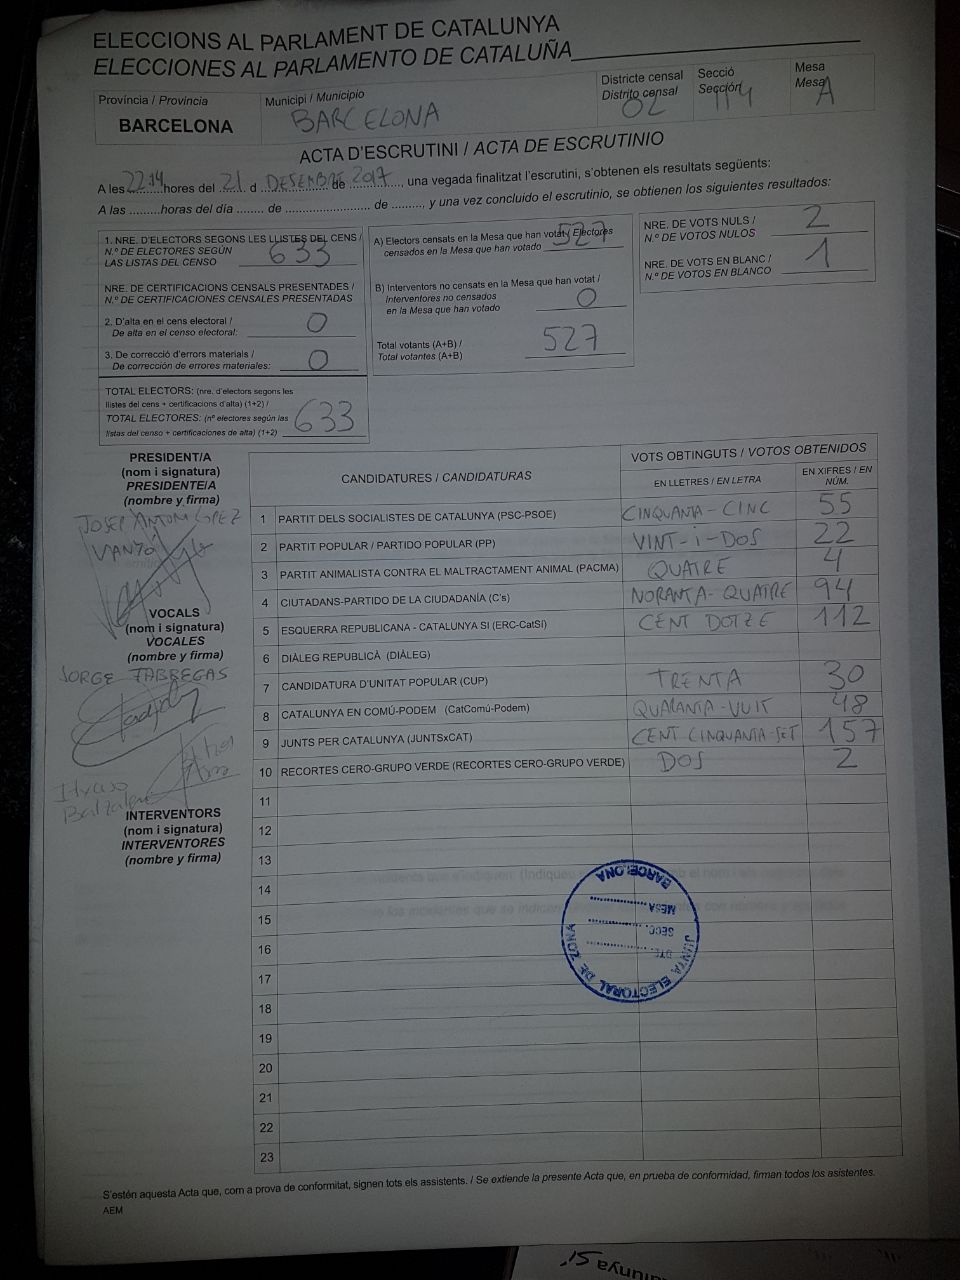 ELECCIONS AL PARLAMENT DE CATALUNYA
ELECCIONES AL PARLAMENTO DE CATALUÑA
Província / Provincia
BARCELONA
Municipi / Municipio
BARCELONA
Districte censal
Distrito censal
02
Secció
Sección
114
Mesa
Mesa
A
ACTA D'ESCRUTINI / ACTA DE ESCRUTINIO
A les 22:14 hores del 21 d DESEMBRE de 2017, una vegada finalitzat l'escrutini, s'obtenen els resultats següents:
A las ......... horas del día ........ de ........................ de ........., y una vez concluido el escrutinio, se obtienen los siguientes resultados:
1. NRE. D'ELECTORS SEGONS LES LLISTES DEL CENS /
N.º DE ELECTORES SEGÚN
LAS LISTAS DEL CENSO 633
NRE. DE CERTIFICACIONS CENSALS PRESENTADES /
N.º DE CERTIFICACIONES CENSALES PRESENTADAS
2. D'alta en el cens electoral /
De alta en el censo electoral: 0
3. De correcció d'errors materials /
De corrección de errores materiales: 0
TOTAL ELECTORS: (nre. d'electors segons les
llistes del cens + certificacions d'alta) (1+2) /
TOTAL ELECTORES: (nº electores según las
listas del censo + certificaciones de alta) (1+2) 633
A) Electors censats en la Mesa que han votat / Electores
censados en la Mesa que han votado 527
B) Interventors no censats en la Mesa que han votat /
Interventores no censados
en la Mesa que han votado 0
Total votants (A+B) /
Total votantes (A+B) 527
NRE. DE VOTS NULS /
N.º DE VOTOS NULOS 2
NRE. DE VOTS EN BLANC /
N.º DE VOTOS EN BLANCO 1
PRESIDENT/A
(nom i signatura)
PRESIDENTE/A
(nombre y firma)
JOSEP ANTONI LOPEZ
VOCALS
(nom i signatura)
VOCALES
(nombre y firma)
JORGE FABREGAS
INTERVENTORS
(nom i signatura)
INTERVENTORES
(nombre y firma)
CANDIDATURES / CANDIDATURAS
VOTS OBTINGUTS / VOTOS OBTENIDOS
EN LLETRES / EN LETRA
EN XIFRES / EN
NÚM.
1 PARTIT DELS SOCIALISTES DE CATALUNYA (PSC-PSOE) CINQUANTA-CINC 55
2 PARTIT POPULAR / PARTIDO POPULAR (PP) VINT-i-DOS 22
3 PARTIT ANIMALISTA CONTRA EL MALTRACTAMENT ANIMAL (PACMA) QUATRE 4
4 CIUTADANS-PARTIDO DE LA CIUDADANÍA (C's) NORANTA-QUATRE 94
5 ESQUERRA REPUBLICANA - CATALUNYA SI (ERC-CatSí) CENT DOTZE 112
6 DIÀLEG REPUBLICÀ (DIÀLEG)
7 CANDIDATURA D'UNITAT POPULAR (CUP) TRENTA 30
8 CATALUNYA EN COMÚ-PODEM (CatComú-Podem) QUARANTA-VUIT 48
9 JUNTS PER CATALUNYA (JUNTSxCAT) CENT CINQUANTA-SET 157
10 RECORTES CERO-GRUPO VERDE (RECORTES CERO-GRUPO VERDE) DOS 2
11
12
13
14
15
16
17
18
19
20
21
22
23
JUNTA ELECTORAL DE ZONA
BARCELONA
DTE.
SECC.
MESA
S'estén aquesta Acta que, com a prova de conformitat, signen tots els assistents. / Se extiende la presente Acta que, en prueba de conformidad, firman todos los asistentes.
AEM